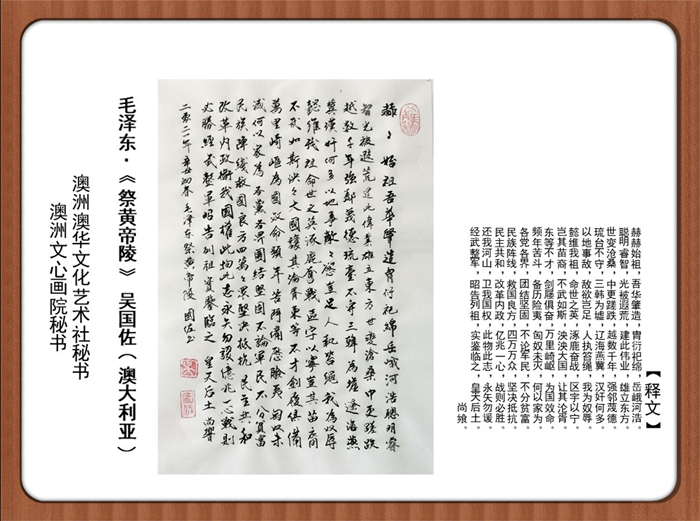 【释文】
赫赫始祖，吾华肇造，胄衍祀绵，岳峨河浩。
聪明睿智，光被遐荒，建此伟业，雄立东方。
世变沧桑，中更蹉跌，越数千年，强邻蔑德。
琉台不守，三韩为墟，辽海燕冀，汉奸何多。
以地事敌，敌欲岂足，人执笞绳，我为奴辱。
懿维我祖，命世之英，涿鹿奋战，区宇以宁。
岂其苗裔，不武如斯，泱泱大国，让其沦胥。
东等不才，剑屦俱奋，万里崎岖，为国效命。
频年苦斗，备历险夷，匈奴未灭，何以家为。
各党各界，团结坚固，不论军民，不分贫富。
民族阵线，救国良方，四万万众，坚决抵抗。
民主共和，改革内政，亿兆一心，战则必胜。
还我河山，卫我国权，此物此志，永矢勿谖。
经武整军，昭告列祖，实鉴临之，皇天后土。
尚飨。
赫々始祖吾华肇造胄衍祀绵岳峨河浩聪明睿
智光被遐荒建此伟业雄立东方世变沧桑中更蹉跌
越数千年强邻蔑德琉台不守三韩为墟辽海燕
冀汉奸何多以地事敌々欲岂足人执笞绳我为奴辱
懿维我祖命世之英涿鹿奋战区宇以宁岂其苗裔
不武如斯泱々大国让其沦胥东等不才剑屦俱奋
万里崎岖为国效命频年苦斗备历险夷匈奴未
灭何以家为各党各界团结坚固不论军民不分贫富
民族阵线救国良方四万万众坚决抵抗民主共和
改革内政卫我国权此物此志永矢勿谖亿兆一心战则
必胜经武整军昭告列祖实鉴临之皇天后土尚飨
二〇二一年辛丑初春毛泽东祭黄帝陵 国佐书
毛泽东·《祭黄帝陵》 吴国佐（澳大利亚）
澳洲澳华文化艺术社秘书
澳洲文心画院秘书